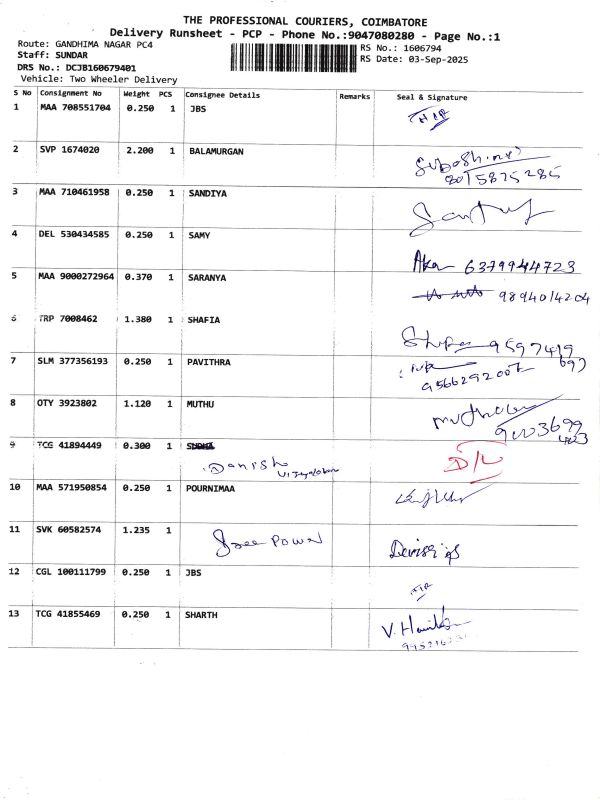 THE PROFESSIONAL COURIERS, COIMBATORE
Delivery Runsheet - PCP - Phone No.:9047080280 - Page No.:1
Route: GANDHIMA NAGAR PC4
Staff: SUNDAR
DRS No.: DCJB160679401
Vehicle: Two Wheeler Delivery
RS No.: 1606794
RS Date: 03-Sep-2025
S No Consignment No Weight PCS Consignee Details Remarks Seal & Signature
1 MAA 708551704 0.250 1 JBS
2 SVP 1674020 2.200 1 BALAMURGAN
8015875285
3 MAA 710461958 0.250 1 SANDIYA
4 DEL 530434585 0.250 1 SAMY
6379944723
5 MAA 9000272964 0.370 1 SARANYA
9894014204
6 TRP 7008462 1.380 1 SHAFIA
9597419
697
7 SLM 377356193 0.250 1 PAVITHRA
8 OTY 3923802 1.120 1 MUTHU
9 TCG 41894449 0.300 1
Danish
D/L
10 MAA 571950854 0.250 1 POURNIMAA
11 SVK 60582574 1.235 1
Sree Power
12 CGL 100111799 0.250 1 JBS
13 TCG 41855469 0.250 1 SHARTH